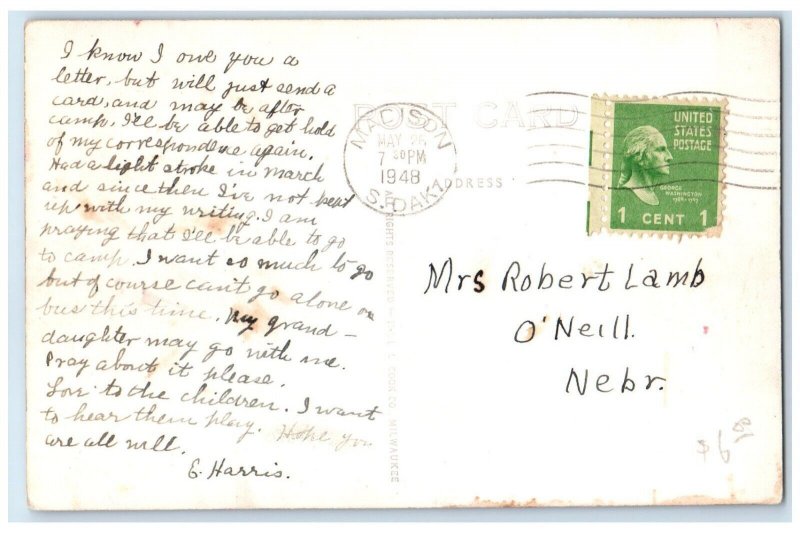 I know I owe you a
letter, but will just send a
card, and may be after
camp. I'll be able to get hold
of my correspondence again.
Had a light stroke in march
and since then I've not kept
up with my writing. I am
praying that I'll be able to go
to camp. I want so much to go
but of course can't go alone on
bus this time. My grand-
daughter may go with me.
Pray about it please.
Love to the children. I want
to hear them play. Hope you
are all well.
E. Harris.
POST CARD
ADDRESS
MADISON
MAY 26
7 30 PM
1948
S. DAK.
UNITED
STATES
POSTAGE
GEORGE
WASHINGTON
1789-1797
1 CENT 1
Mrs Robert Lamb
O'Neill.
Nebr.
ALL RIGHTS RESERVED
COOK CO MILWAUKEE